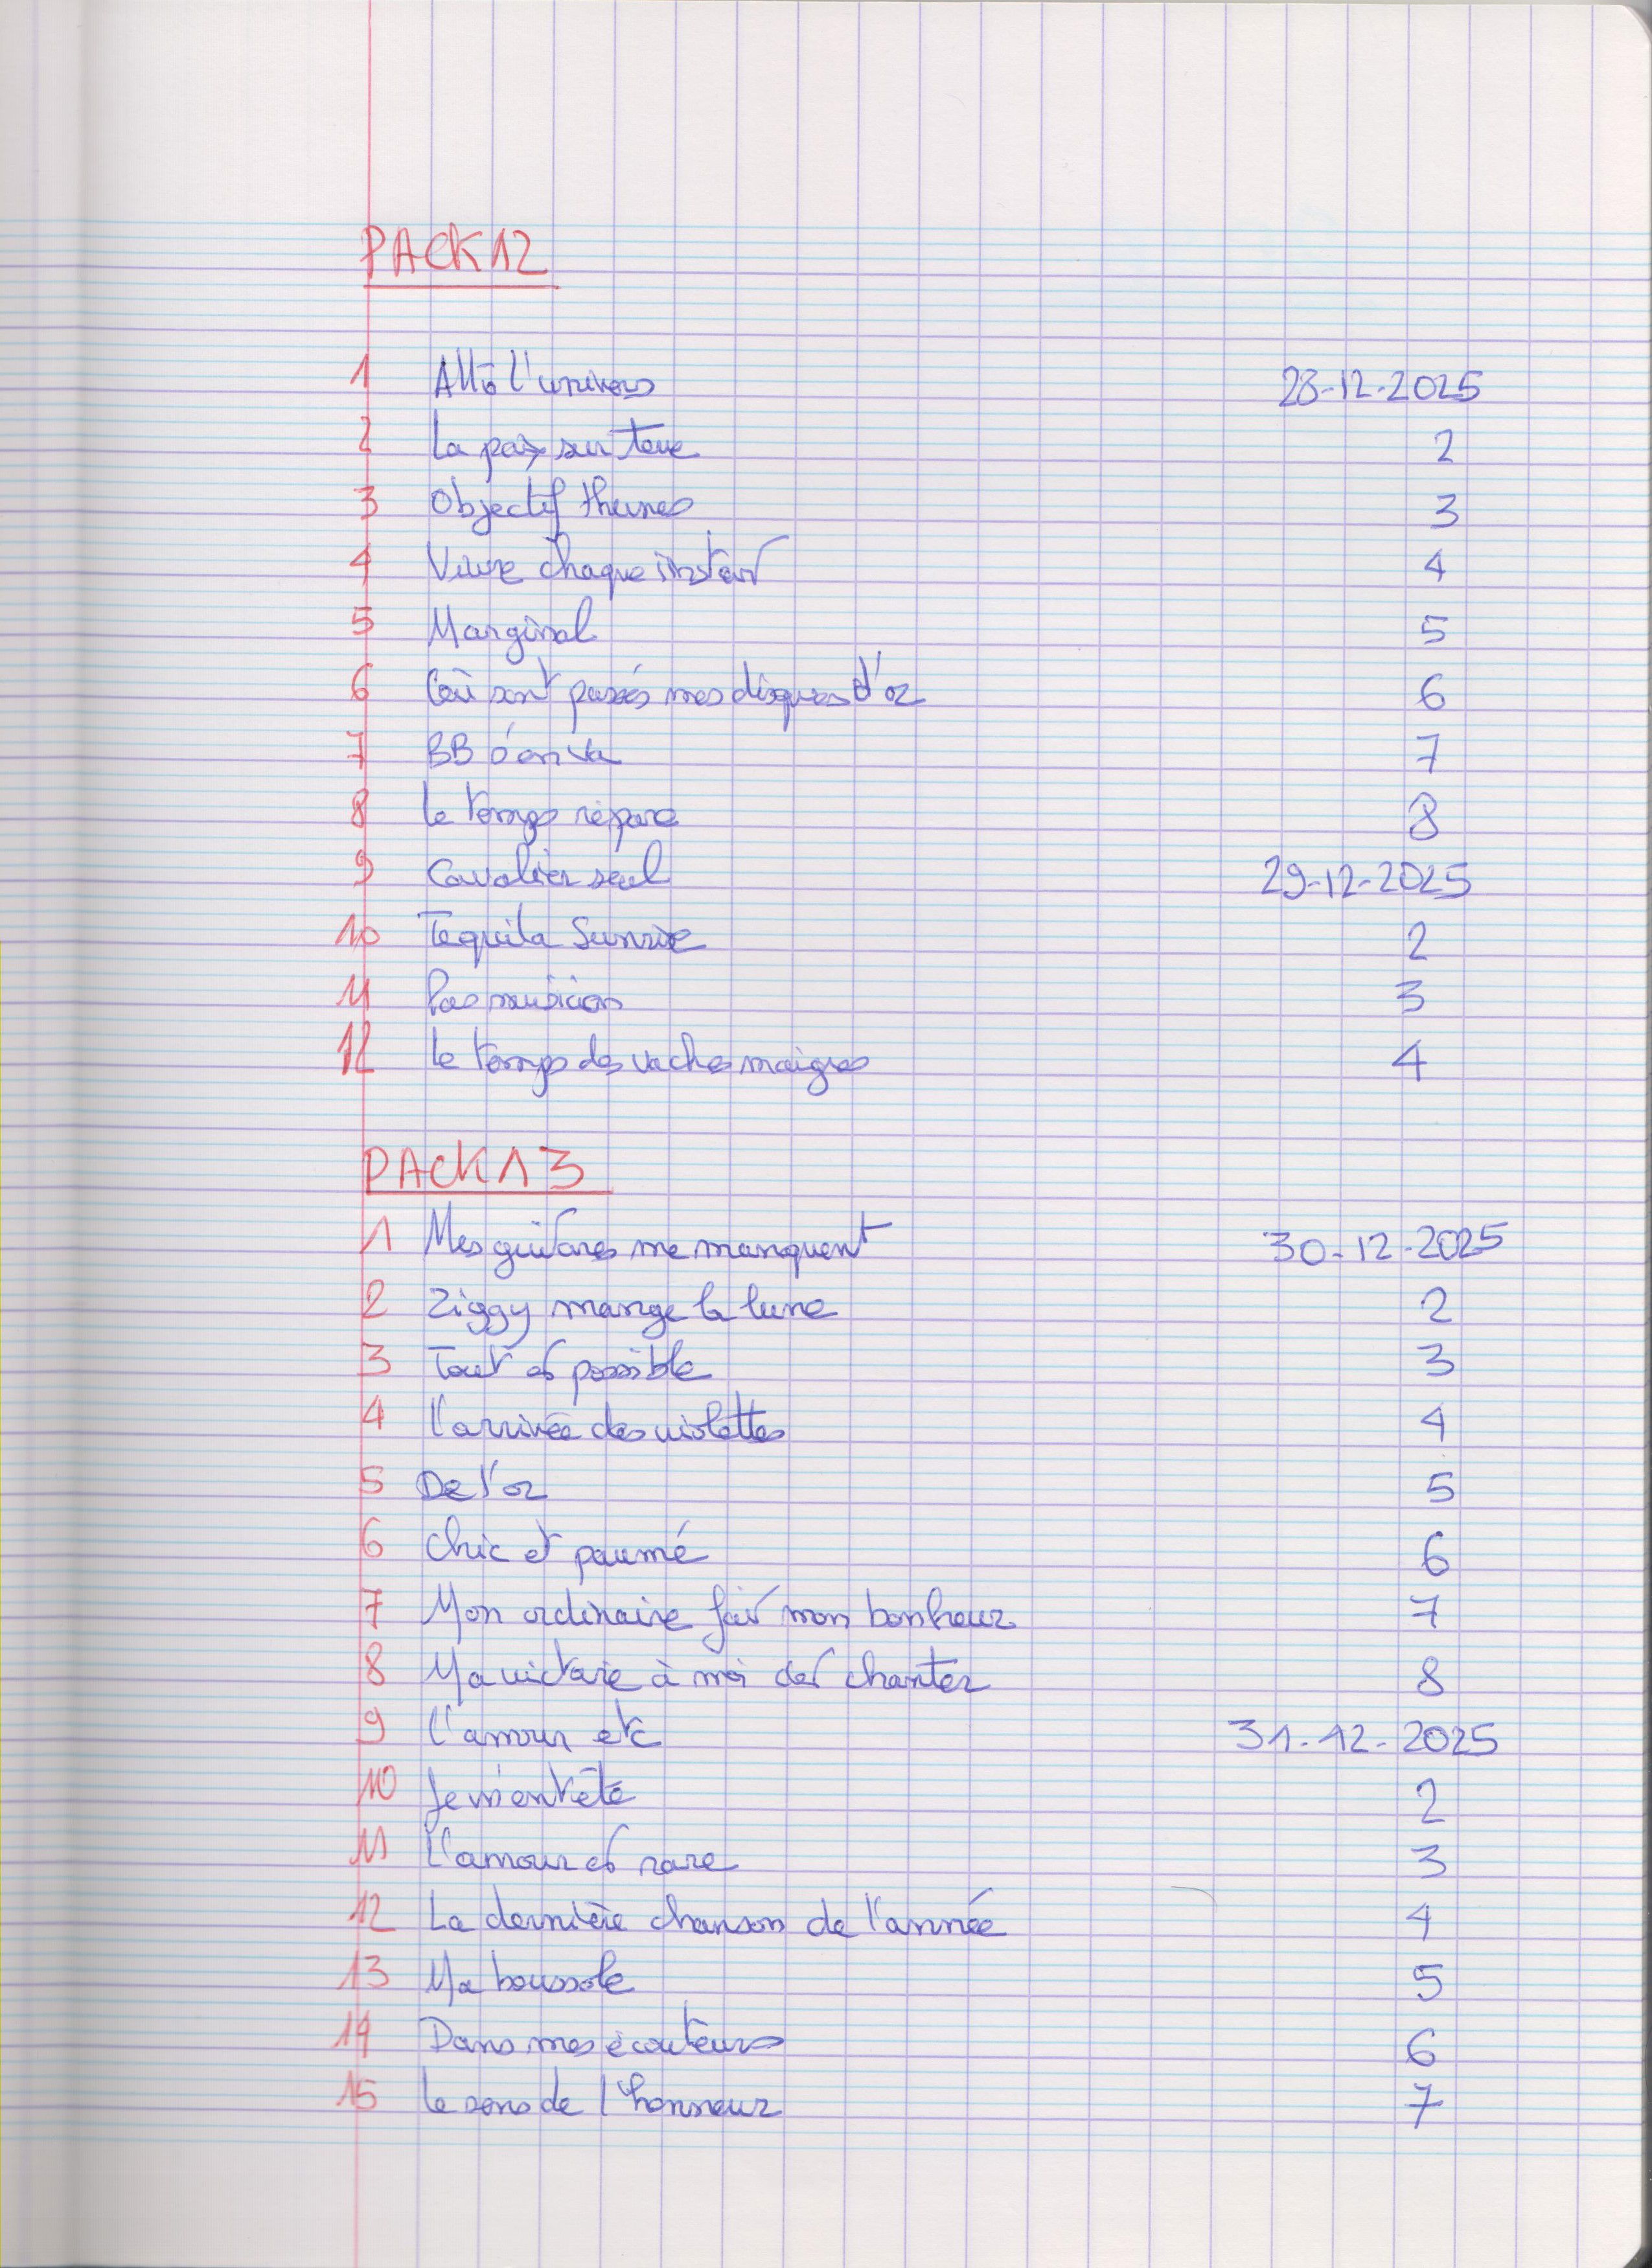 PACK 12
1 Allô l'univers 28-12-2025
2 La paix sur terre 2
3 Objectif thunes 3
4 Vivre chaque instant 4
5 Marginal 5
6 Où sont passés mes disques d'or 6
7 BB s'en va 7
8 Le temps répare 8
9 Cavalier seul 29-12-2025
10 Tequila Sunrise 2
11 Pas musicien 3
12 Le temps des vaches maigres 4
PACK 13
1 Mes guitares me manquent 30-12-2025
2 Ziggy mange la lune 2
3 Tout est possible 3
4 L'arrivée des violettes 4
5 De l'or 5
6 Chic et paumé 6
7 Mon ordinaire fait mon bonheur 7
8 Ma victoire à moi c'est chanter 8
9 L'amour etc 31-12-2025
10 Je m'entête 2
11 L'amour est rare 3
12 La dernière chanson de l'année 4
13 Ma boussole 5
14 Dans mes écouteurs 6
15 Le sens de l'honneur 7